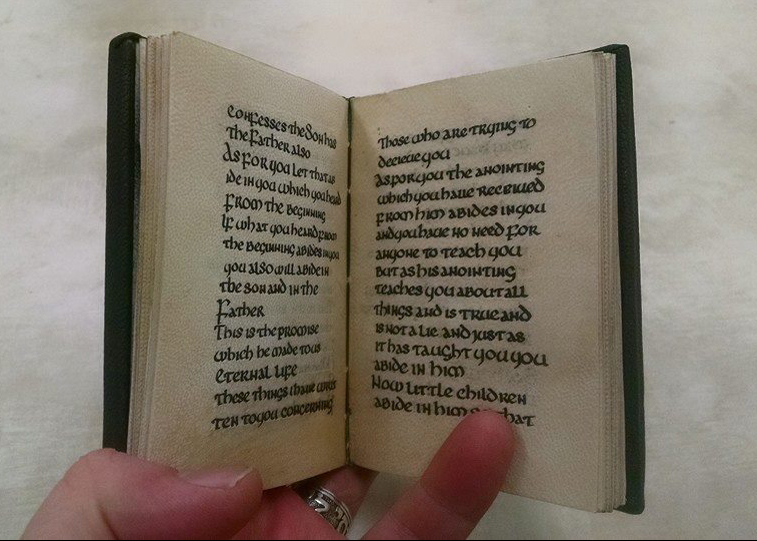 confesses the Son has
the Father also
As for you let that ab
ide in you which you heard
from the beginning
If what you heard from
the beginning abides in you
you also will abide in
the son and in the
Father
This is the promise
which he made to us
eternal life
these things i have writ
ten to you concerning
Those who are trying to
deceive you
As for you the anointing
which you have received
from him abides in you
and you have no need for
anyone to teach you
But as his anointing
teaches you about all
things and is true and
is not a lie and just as
it has taught you you
abide in him
Now little children
abide in him so that